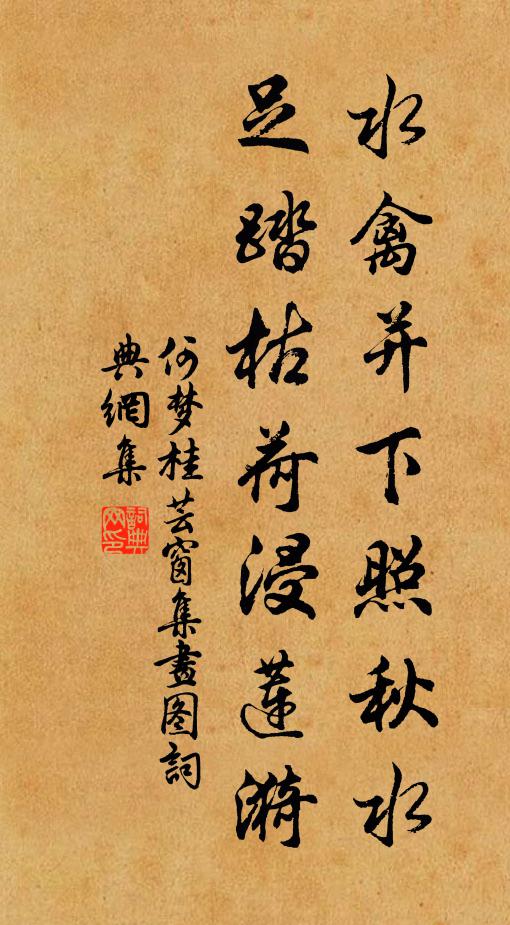 水禽并下照秋水
足踏枯荷浸莲漪
何梦桂芸窗集畫图詞
典網集
詞典网印